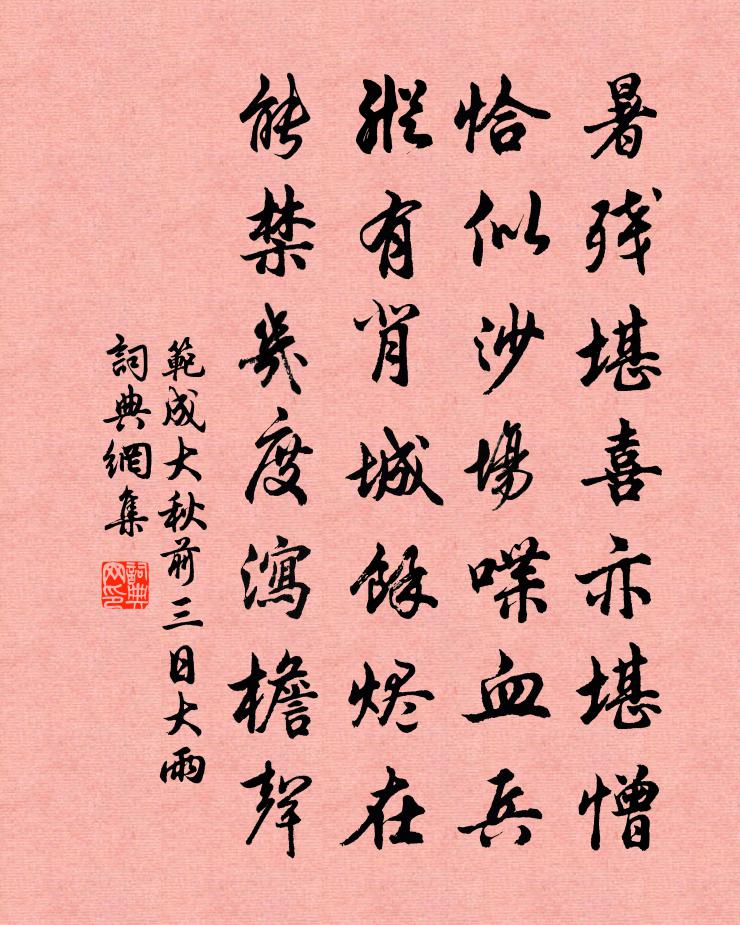 暑残堪喜亦堪憎
恰似沙場喋血兵
縱有背城餘烬在
能禁幾度瀉檐聲
範成大秋前三日大雨
詞典網集
詞典網印